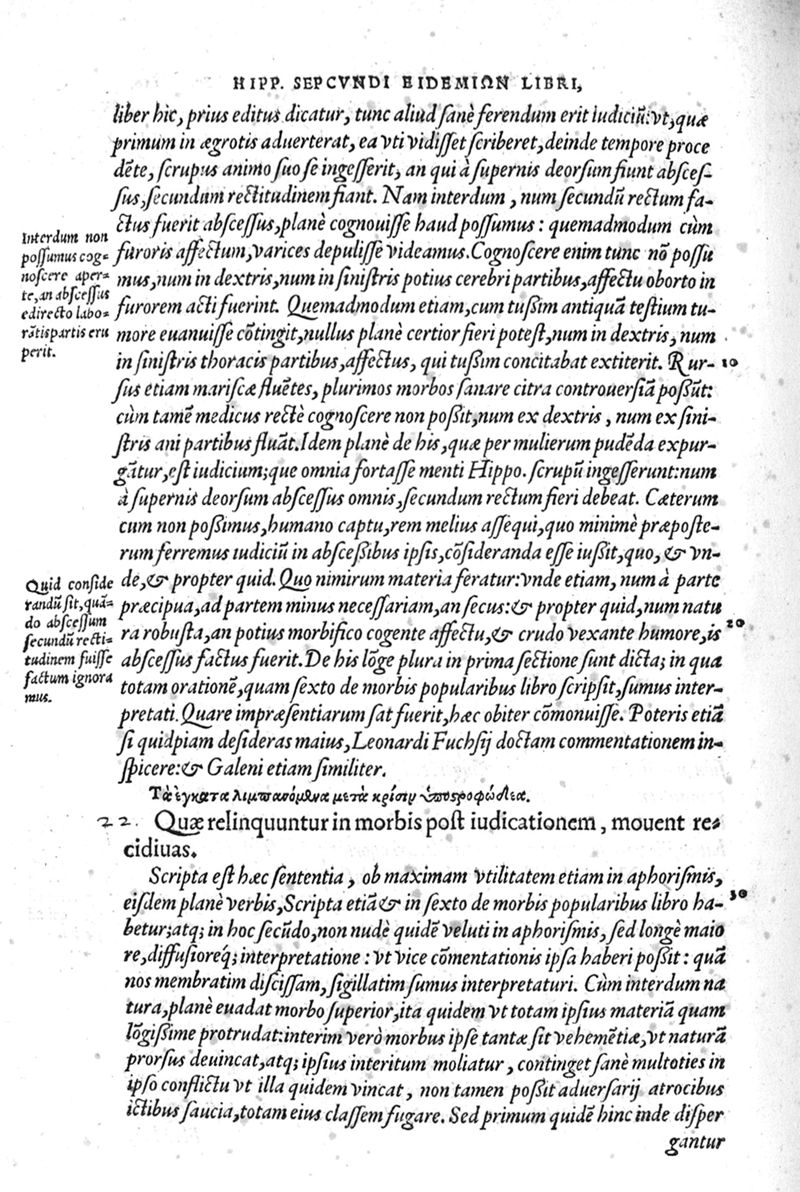 HIPP. SEPCVNDI EIDEMIΩN LIBRI,
liber hic, prius editus dicatur, tunc aliud sanè ferendum erit iudiciũ: vt, quæ
primum in ægrotis aduerterat, ea vti vidisset scriberet, deinde tempore proce
dẽte, scrupus animo suo se ingesserit, an qui à supernis deorsum fiunt absces-
sus, secundum rectitudinem fiant. Nam interdum, num secundũ rectum fa-
ctus fuerit abscessus, planè cognouisse haud possumus: quemadmodum cùm
furoris affectum, varices depulisse videamus. Cognoscere enim tunc nõ possu
mus, num in dextris, num in sinistris potius cerebri partibus, affectu oborto in
furorem acti fuerint. Quemadmodum etiam, cum tußim antiquã testium tu-
more euanuisse cõtingit, nullus planè certior fieri potest, num in dextris, num
in sinistris thoracis partibus, affectus, qui tußim concitabat extiterit. Rur-
sus etiam mariscæ fluẽtes, plurimos morbos sanare citra controuersiã poßũt:
cùm tamẽ medicus rectè cognoscere non poßit, num ex dextris, num ex sini-
stris ani partibus fluãt. Idem planè de his, quæ per mulierum pudẽda expur-
gãtur, est iudicium; que omnia fortasse menti Hippo. scrupũ ingesserunt: num
à supernis deorsum abscessus omnis, secundum rectum fieri debeat. Cæterum
cum non poßimus, humano captu, rem melius assequi, quo minimè præposte-
rum ferremus iudiciũ in absceßibus ipsis, cõsideranda esse iußit, quo, & vn-
de, & propter quid. Quo nimirum materia feratur: vnde etiam, num à parte
præcipua, ad partem minus necessariam, an secus: & propter quid, num natu
ra robusta, an potius morbifico cogente affectu, & crudo vexante humore, is
abscessus factus fuerit. De his lõge plura in prima sectione sunt dicta; in qua
totam orationẽ, quam sexto de morbis popularibus libro scripsit, sumus inter-
pretati. Quare impræsentiarum sat fuerit, hæc obiter cõmonuisse. Poteris etiã
si quidpiam desideras maius, Leonardi Fuchsij doctam commentationem in-
spicere: & Galeni etiam similiter.
Interdum non
possumus cog-
noscere aper-
te, an abscessus
edirecto labo-
rãtis partis eru
perit.
10
Quid conside
randũ sit, quã-
do abscessum
secundũ recti-
tudinem fuisse
factum ignora
mus.
20
Τὰ ἐγκατα λιμπανόμϑνα μετὰ κρίσιν ὑποςροφώδεα.
22. Quæ relinquuntur in morbis post iudicationem, mouent re-
cidiuas.
Scripta est hæc sententia, ob maximam vtilitatem etiam in aphorismis,
eisdem planè verbis, Scripta etiã & in sexto de morbis popularibus libro ha-
30
betur; atq; in hoc secũdo, non nudè quidẽ veluti in aphorismis, sed longè maio
re, diffusioreq́; interpretatione: vt vice cõmentationis ipsa haberi poßit: quã
nos membratim discissam, sigillatim sumus interpretaturi. Cùm interdum na
tura, planè euadat morbo superior, ita quidem vt totam ipsius materiã quam
lõgissime protrudat: interim verò morbus ipse tantæ sit vehemẽtiæ, vt naturã
prorsus deuincat, atq; ipsius interitum moliatur, continget sanè multoties in
ipso conflictu vt illa quidem vincat, non tamen poßit aduersarij atrocibus
ictibus saucia, totam eius classem fugare. Sed primum quidẽ hinc inde disper
gantur